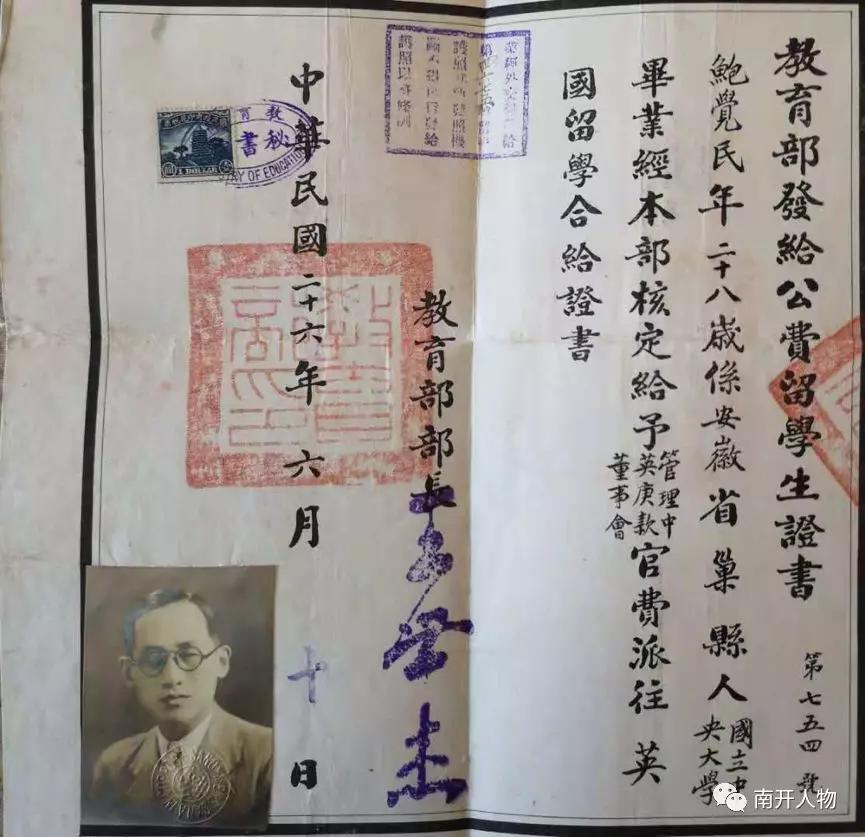 教育部發給公費留學生證書
第七五四號
鮑覺民年二十八歲係安徽省巢縣人國立中央大學
畢業經本部核定給予管理中英庚款董事會官費派往英
國留學合給證書
教育部部長王世杰
中華民國二十六年六月十日
教育
秘書
1 DOLLAR
OF EDUCATION
護照以資條例
南开人物